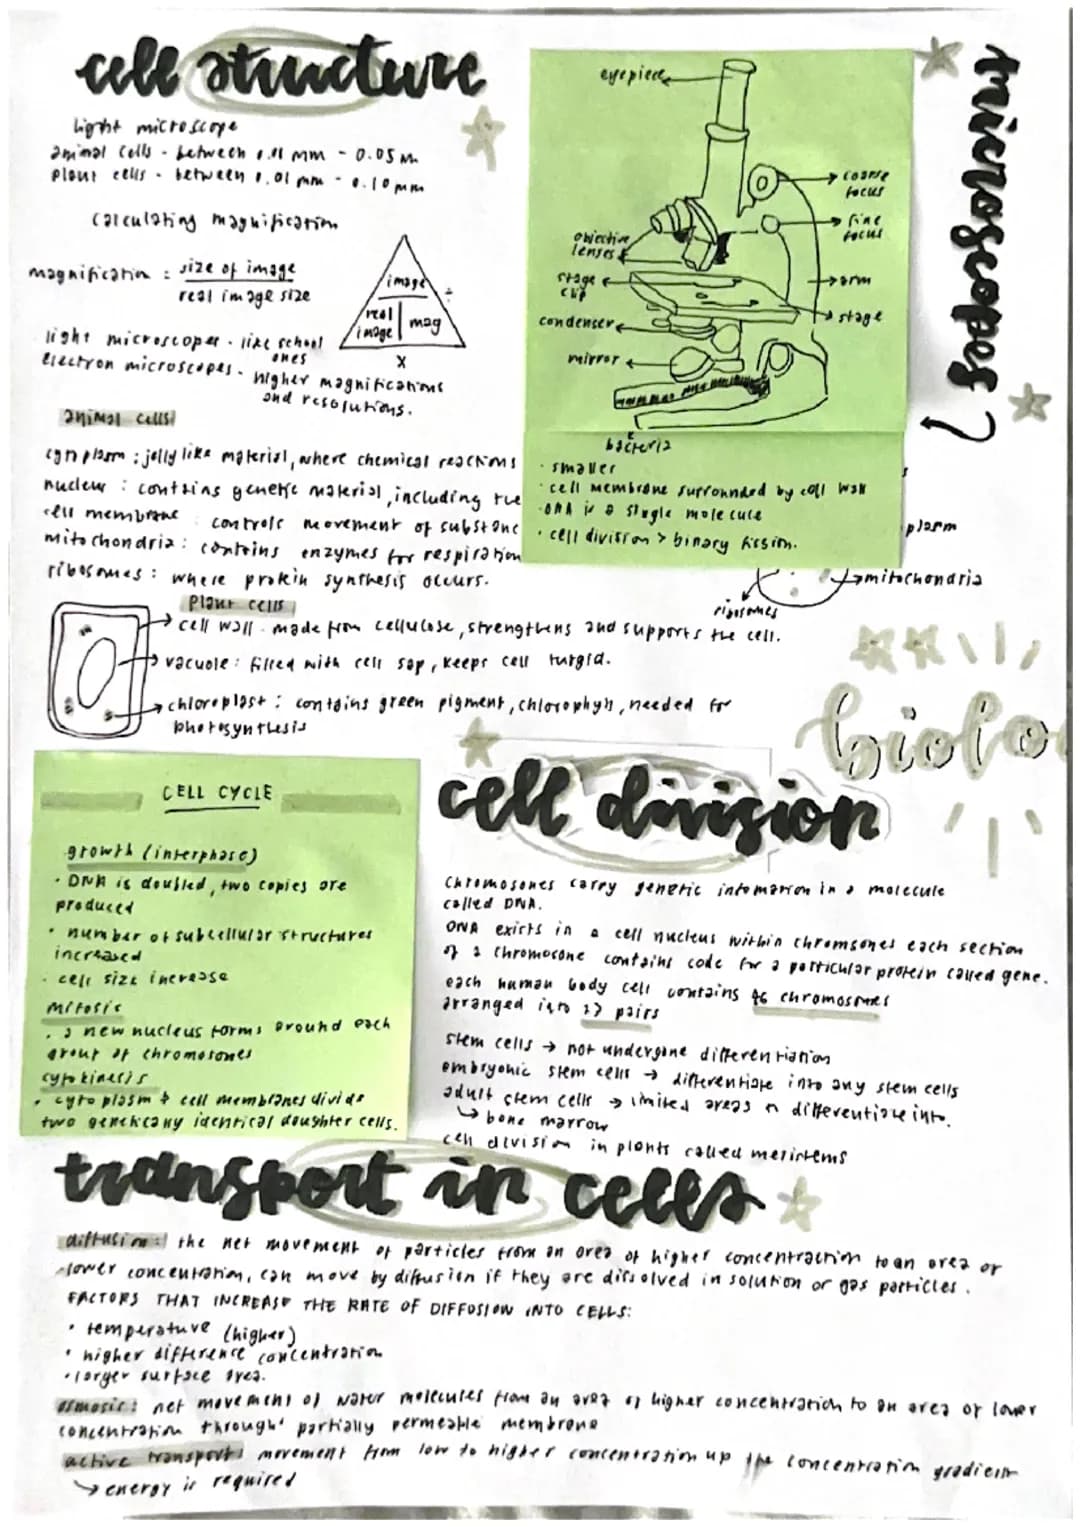 cell structure
light microscope
animal cells - between 0.01 mm - 0.05 m
plant cells - between 0.01 mm - 0.10 mm
calculating magnification
magnification = size of image
real image size
image
real image
mag
÷
x
light microscopes - like school ones
electron microscopes - higher magnifications
and resolutions.
microscopes
eyepiece
coarse focus
fine focus
objective lenses
stage clip
arm
stage
condenser
mirror
bacteria
· smaller
· cell membrane surrounded by cell wall
· DNA is a single molecule
· cell division > binary fission.
animal cells
cytoplasm : jelly like material, where chemical reactions
nucleus : contains genetic material, including the
cell membrane controls movement of substanc
mitochondria : contains enzymes for respiration
ribosomes : where protein synthesis occurs.
plasm
mitochondria
ribosomes
plant cells
cell wall - made from cellulose, strengthens and supports the cell.
vacuole : filled with cell sap, keeps cell turgid.
chloroplast : contains green pigment, chlorophyll, needed for
photosynthesis
biolo
CELL CYCLE
growth (interphase)
· DNA is doubled, two copies are
produced
· number of subcellular structures
increased
· cell size increase
mitosis
· a new nucleus forms around each
group of chromosones
cytokinesis
· cytoplasm + cell membranes divide
two genetically identical daughter cells.
cell division
chromosones carry genetic infomation in a molecule
called DNA.
DNA exists in a cell nucleus within chromsones each section
of a chromosone contains code for a particular protein called gene.
each human body cell contains 46 chromosomes
arranged into 23 pairs
stem cells → not undergone differentiation
embryonic stem cells → differentiate into any stem cells
adult stem cells → limited areas differentiate into.
↳ bone marrow
cell division in plants called meristems
transport in cells
diffusion : the net movement of particles from an area of higher concentraction to an area of
lower concentration, can move by diffusion if they are dissolved in solution or gas particles.
FACTORS THAT INCREASE THE RATE OF DIFFUSION INTO CELLS:
· temperature (higher)
· higher difference concentration
· larger surface area.
osmosis : net movement of water molecules from an area of higher concentration to an area of lower
concentration through partially permeable membrane
active transport : movement from low to higher concentration up the concentration gradient
↳ energy is required